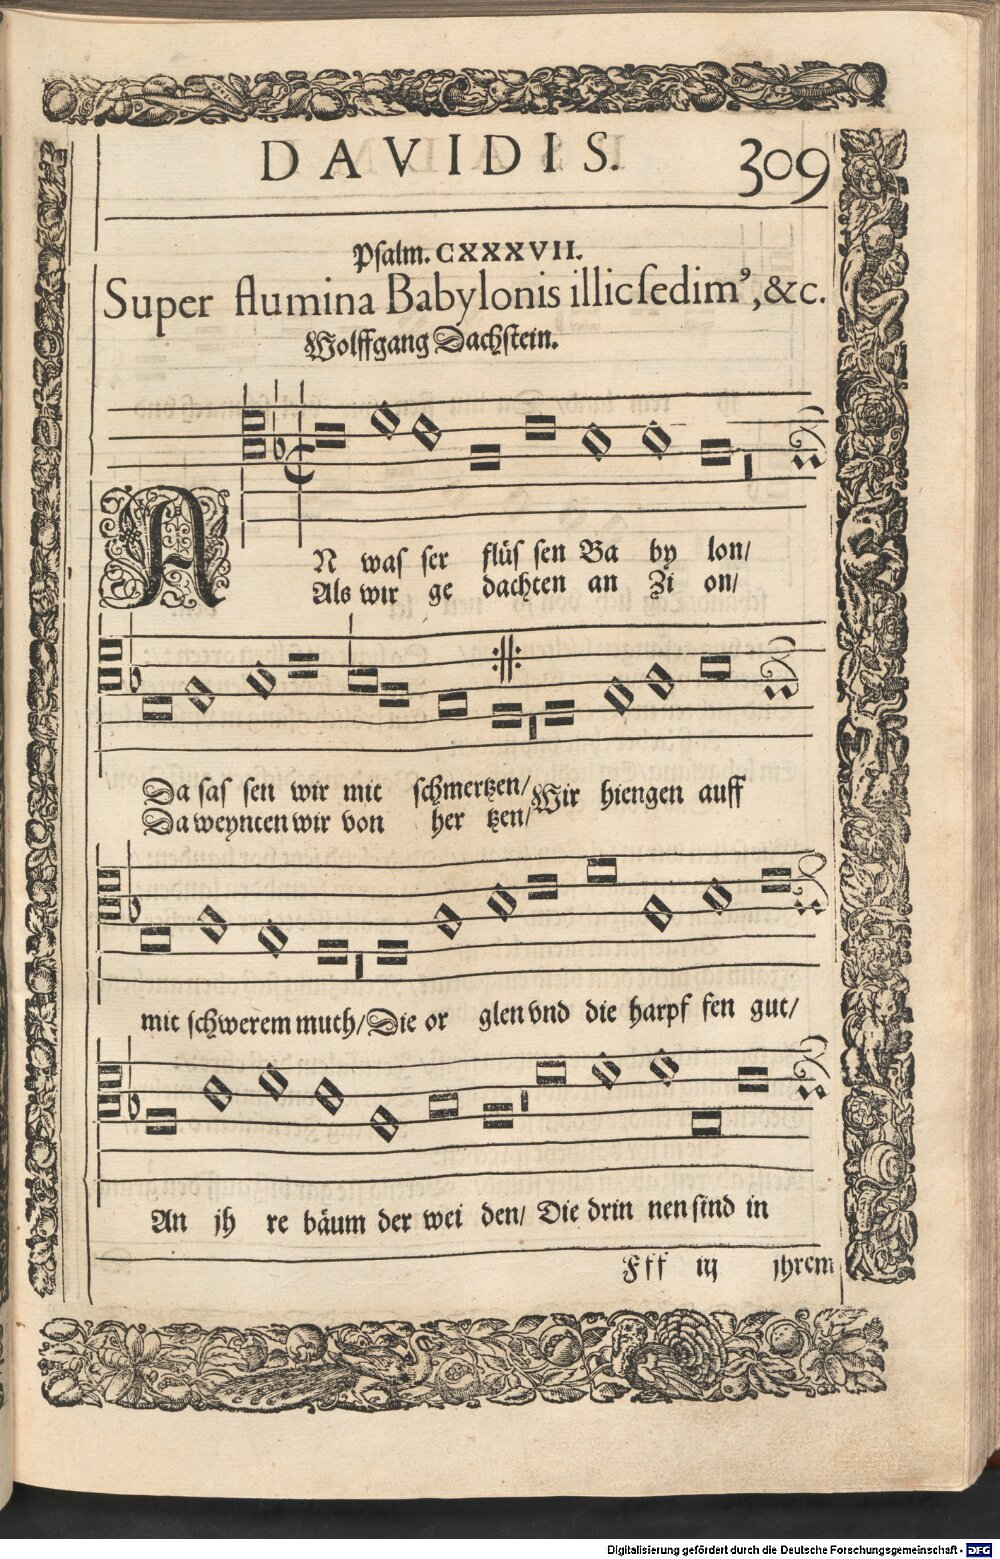 DAVIDIS. 309
Psalm. CXXXVII.
Super flumina Babylonis illic sedim⁹, &c.
Wolffgang Dachstein.
AN was ser flüs sen Ba by lon/
Als wir ge dachten an Zi on/
Da sas sen wir mit schmertzen/ Wir hiengen auff
Da weynten wir von her tzen/
mit schwerem muth/ Die or glen vnd die harpf fen gut/
An jh re bäum der wei den/ Die drin nen sind in
Fff iij jhrem
Digitalisierung gefördert durch die Deutsche Forschungsgemeinschaft - DFG